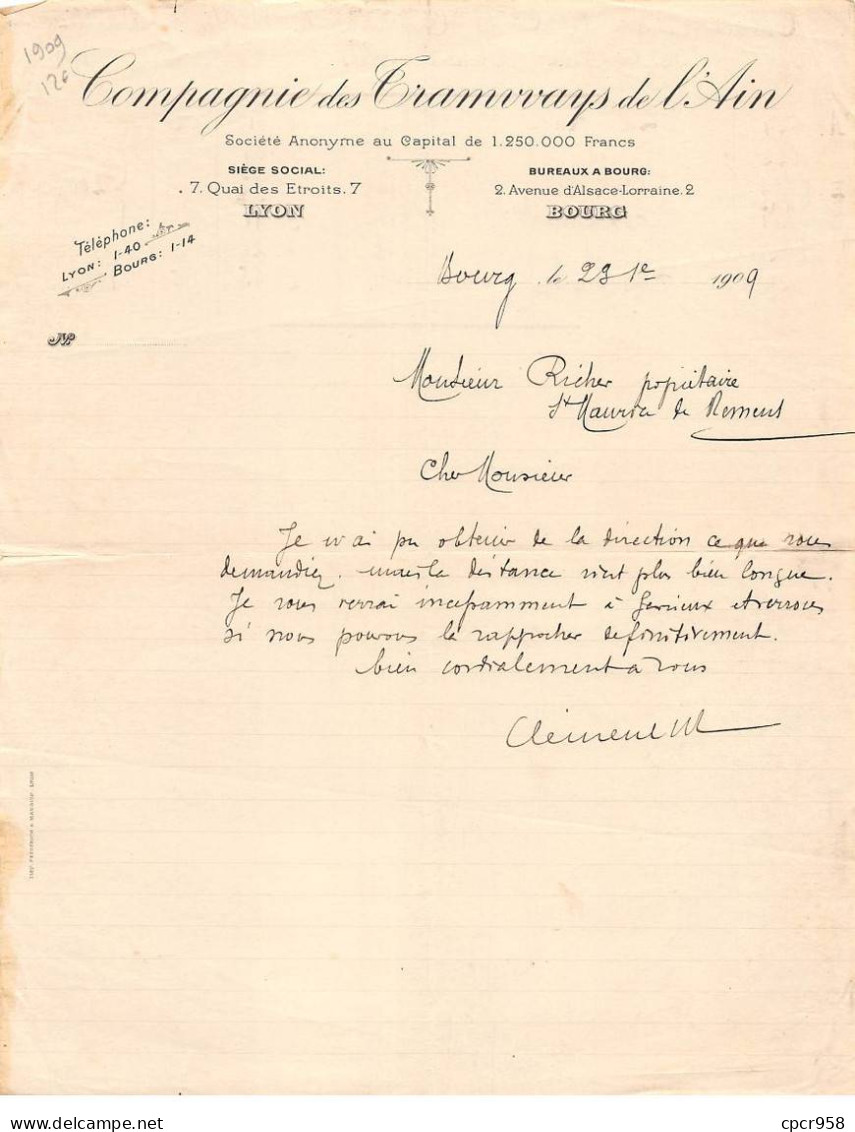 1909
126
Compagnie des Tramways de l'Ain
Société Anonyme au Capital de 1.250.000 Francs
SIÈGE SOCIAL:
7. Quai des Etroits. 7
LYON
BUREAUX A BOURG:
2. Avenue d'Alsace-Lorraine. 2
BOURG
Téléphone:
LYON: 1-40
BOURG: 1-14
Bourg le 23 1909
No
Monsieur Richer propiétaire
St Maurice de
Cher Monsieur
Je n'ai pu obtenir de la direction ce que vous
demandiez. mais la distance n'est plus bien longue.
Je vous verrai incessamment à et verrons
si nous pouvons la rapprocher definitivement.
bien cordialement à vous
Clément
cpcr958